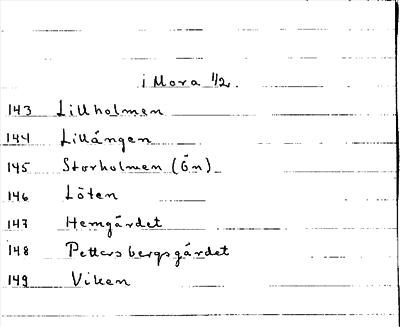 i Mora 1/2.
143 Lillholmen
144 Lillängen
145 Storholmen (Ön)
146 Löten
147 Hemgärdet
148 Pettersbergsgärdet
149 Viken